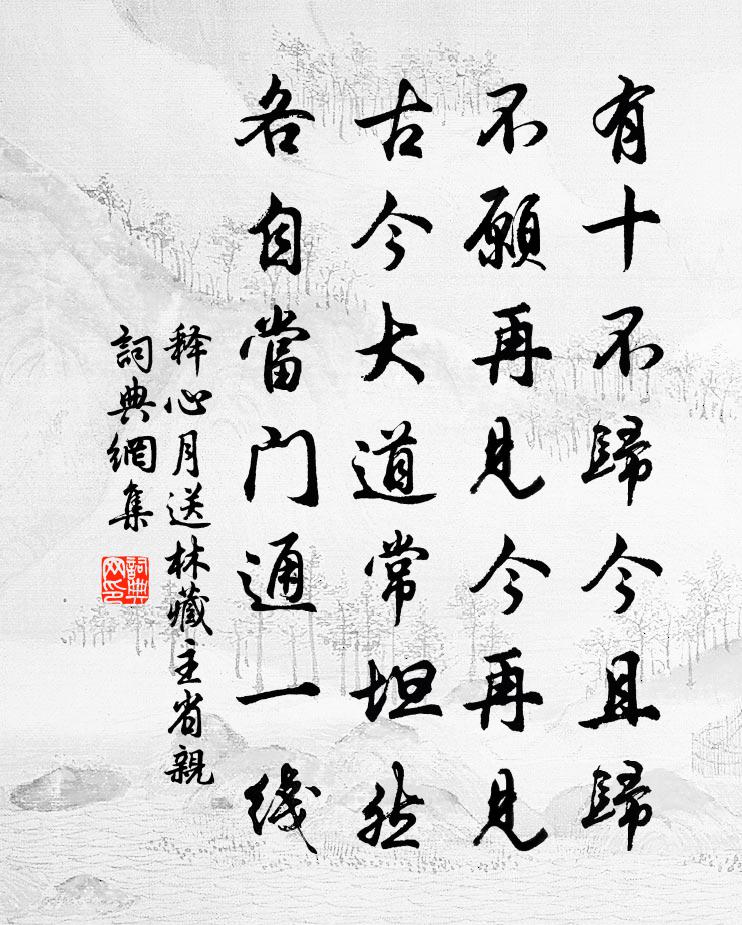 有十不歸今且歸
不願再見今再見
古今大道常坦然
各自當门通一线
释心月送林藏主省親
詞典網集
詞典网印